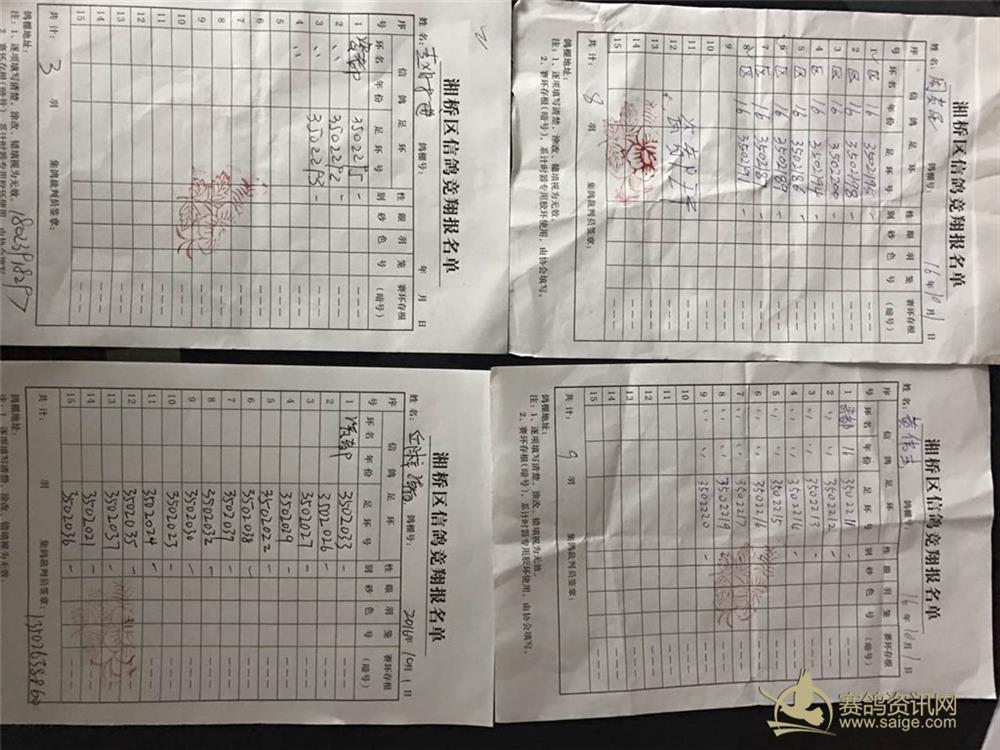 湘桥区信鸽竞翔报名单
姓名: 鸽棚号: 年 月 日
序号 信鸽足环号 环名 年份 足环号 性别 眼砂 羽色 笼号 赛环存根(暗号)
1 3502295 -
2 〃 3502292 -
3 〃 3502293 -
4
5
6
7
8
9
10
11
12
13
14
15
共计: 3 羽 集鸽裁判员签章:
鸽棚地址:
注: 1、逐项填写清楚, 涂改、错填视为无效。
2、赛环存根(暗号), 系计时器专用胶环使用, 由协会填写
18023978297
湘桥区信鸽竞翔报名单
姓名: 鸽棚号: 16年10月1日
序号 信鸽足环号 环名 年份 足环号 性别 眼砂 羽色 笼号 赛环存根(暗号)
1 区 16 3502195 -
2 区 16 3502198 -
3 区 16 3502200 -
4 区 16 3502194 -
5 区 16 3502186 -
6 区 16 3502189 -
7 区 16 3502187 -
8 区 16 3502191 -
9
10
11
12
13
14
15
共计: 8 羽 集鸽裁判员签章:
鸽棚地址:
注: 1、逐项填写清楚, 涂改、错填视为无效。
2、赛环存根(暗号), 系计时器专用胶环使用, 由协会填写。
湘桥区信鸽竞翔报名单
姓名: 鸽棚号: 2016年10月1日
序号 信鸽足环号 环名 年份 足环号 性别 眼砂 羽色 笼号 赛环存根(暗号)
1 3502033 -
2 3502026 -
3 3502027 -
4 3502029 -
5 3502022 -
6 3502038 -
7 3502039 -
8 3502032 -
9 3502030 -
10 3502023 -
11 3502024 -
12 3502035 -
13 3502037 -
14 3502021 -
15 3502036 -
共计: 羽 集鸽裁判员签章:
鸽棚地址:
注: 1、逐项填写清楚, 涂改、错填视为无效。
湘桥区信鸽竞翔报名单
姓名: 黄伟 鸽棚号: 16年10月1日
序号 信鸽足环号 环名 年份 足环号 性别 眼砂 羽色 笼号 赛环存根(暗号)
1 16 3502211 -
2 〃 〃 3502212 -
3 〃 〃 3502213 -
4 〃 〃 3502214 -
5 〃 〃 3502215 -
6 〃 〃 3502216 -
7 〃 〃 3502217 -
8 〃 〃 3502219 -
9 〃 〃 3502220 -
10
11
12
13
14
15
共计: 9 羽 集鸽裁判员签章:
鸽棚地址:
注: 1、逐项填写清楚, 涂改、错填视为无效。
2、赛环存根(暗号), 系计时器专用胶环使用, 由协会填写。
赛鸽资讯网
www.saige.com